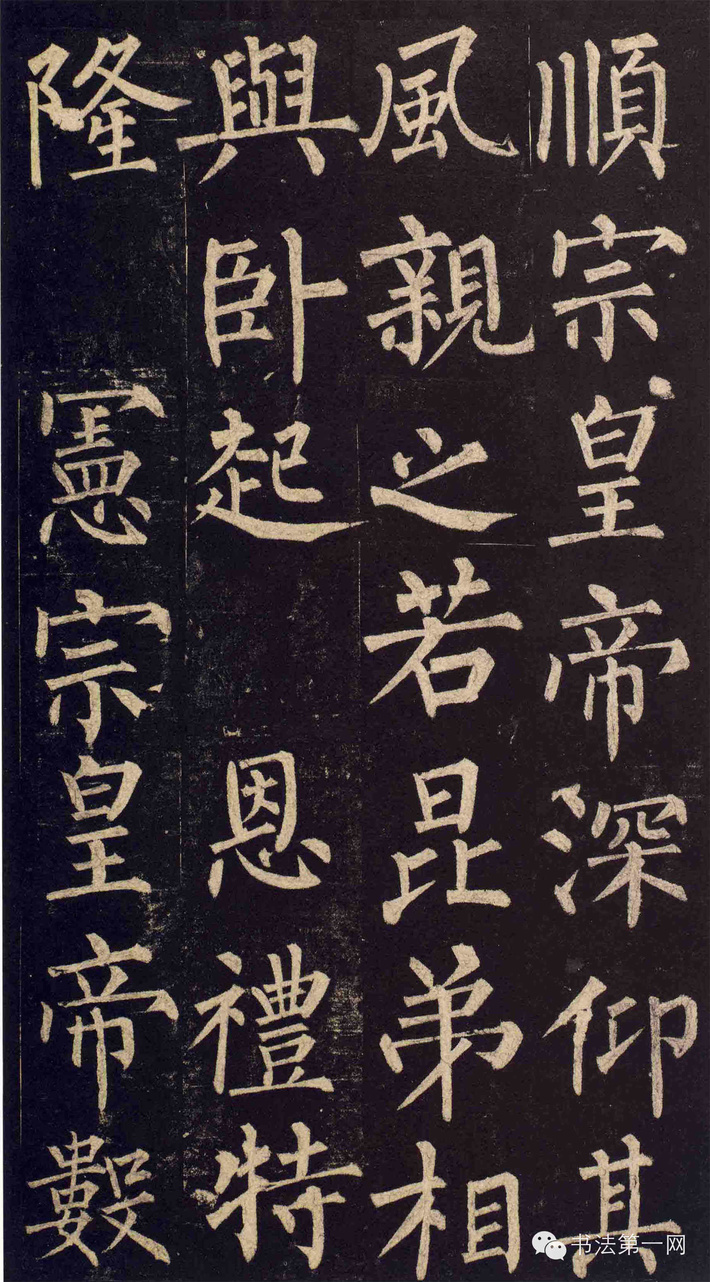 順宗皇帝深仰其
風親之若昆弟相
與卧起　恩禮特
隆　憲宗皇帝數
书法第一网